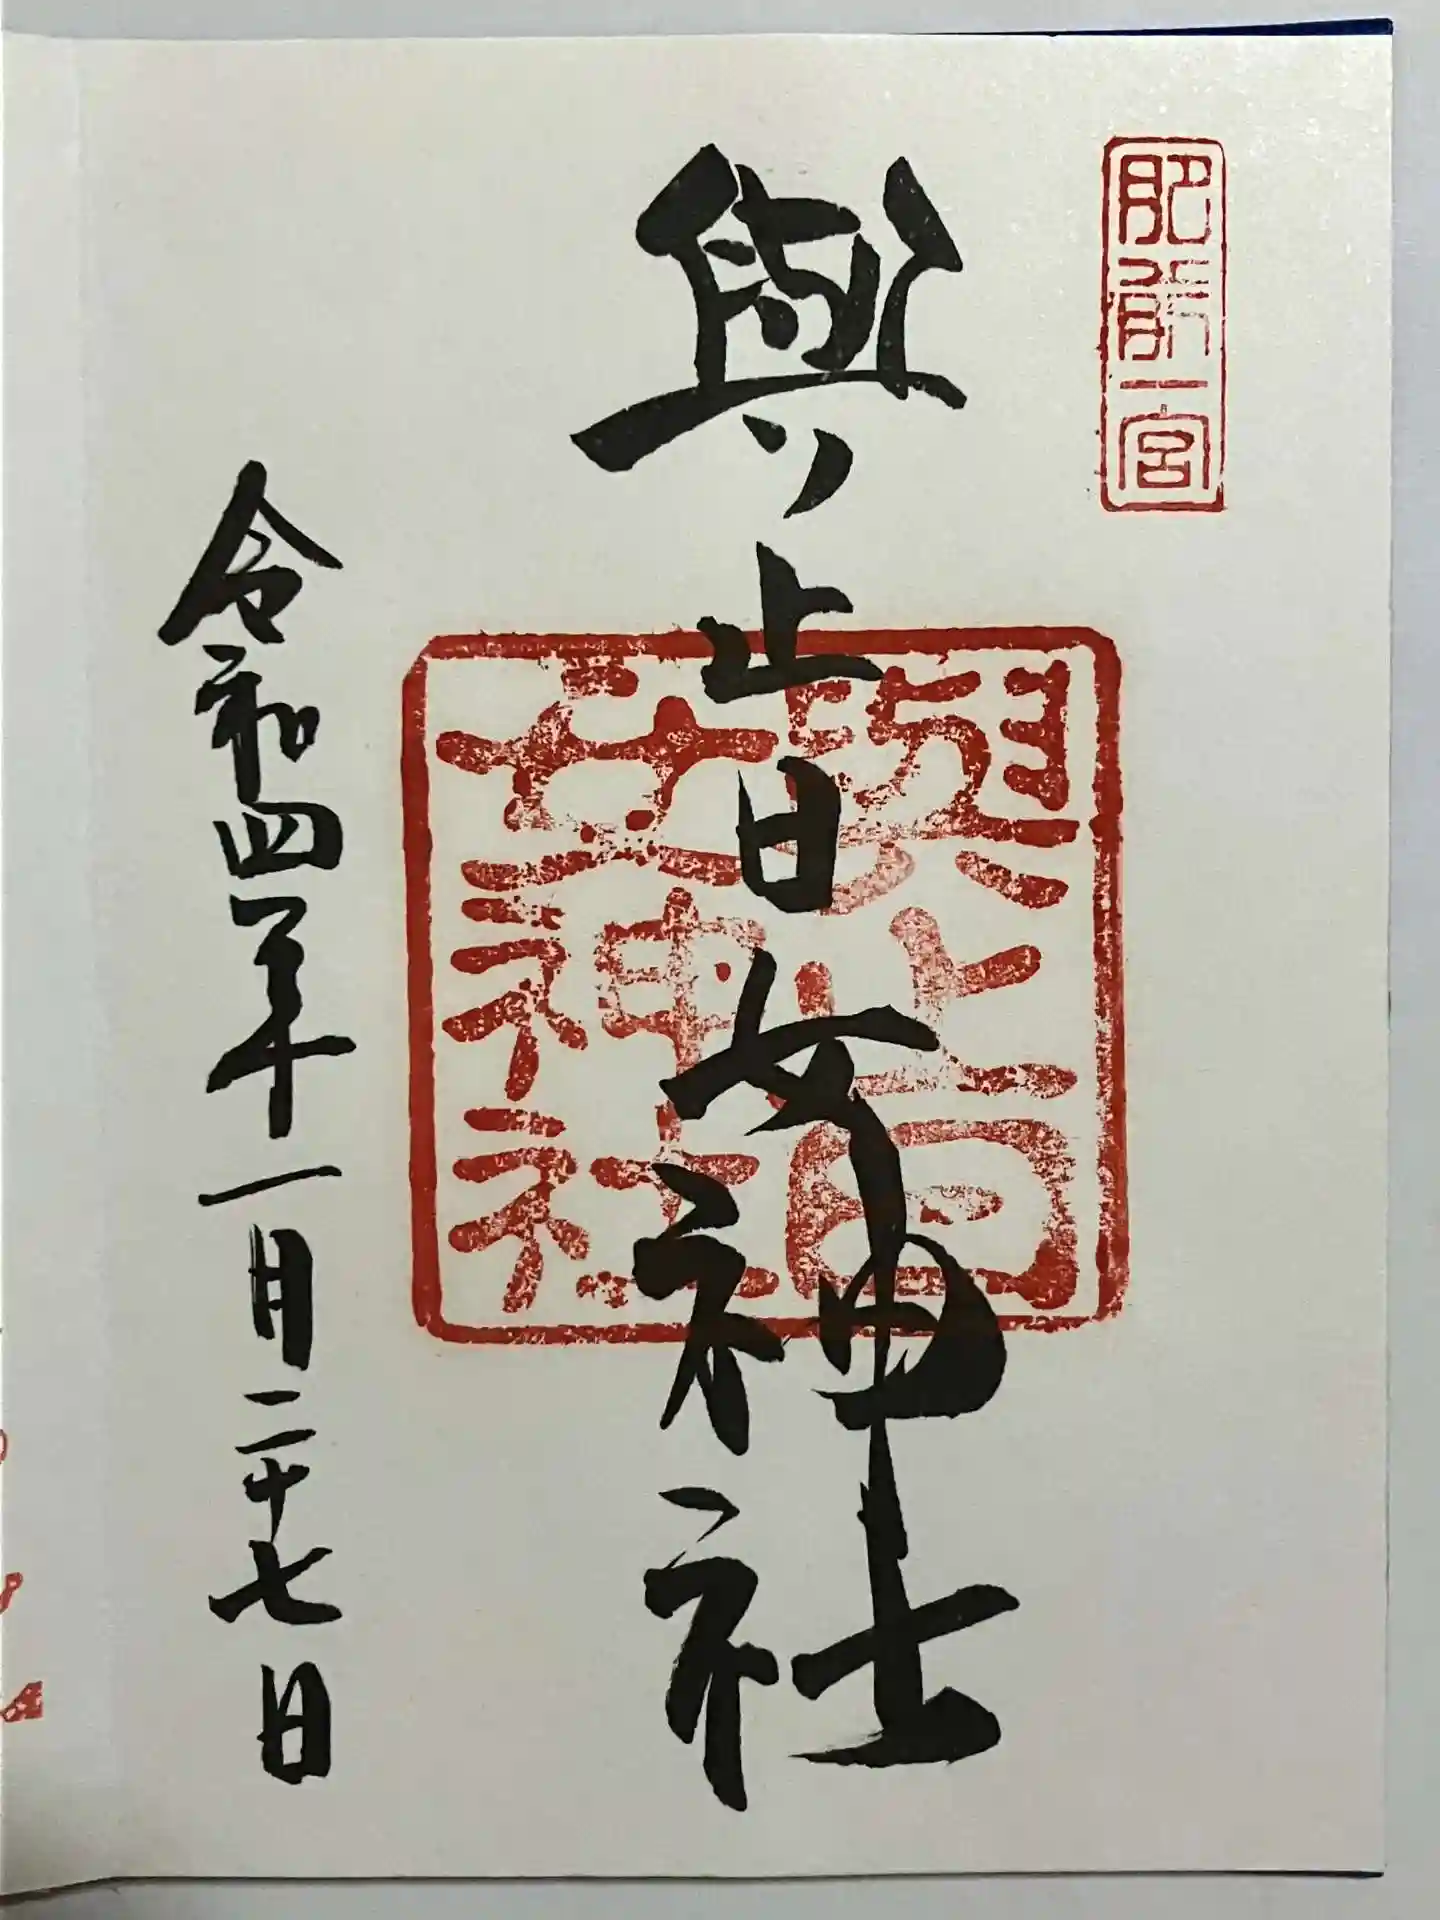 肥前一宮
與止日女神社
與止日
女神社
令和四年一月二十七日